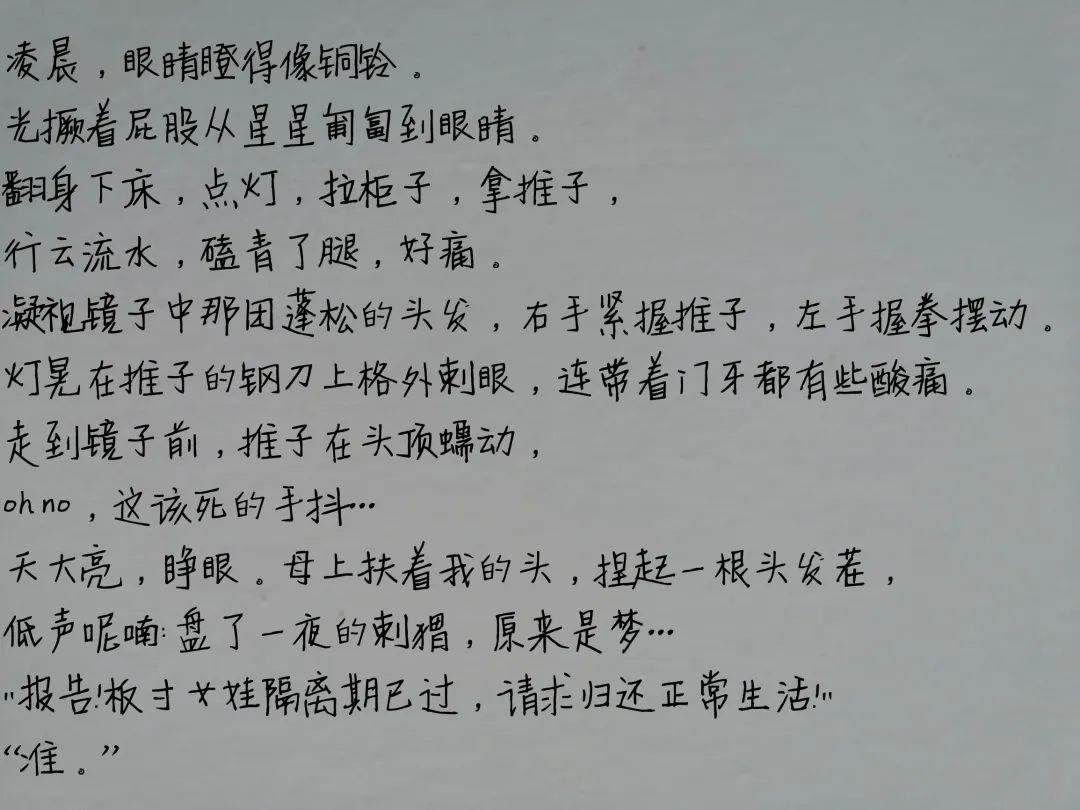 凌晨，眼睛瞪得像铜铃。
光撅着屁股从星星匍匐到眼睛。
翻身下床，点灯，拉柜子，拿推子，
行云流水，磕青了腿，好痛。
凝视镜子中那团蓬松的头发，右手紧握推子，左手握拳摆动。
灯晃在推子的钢刀上格外刺眼，连带着门牙都有些酸痛。
走到镜子前，推子在头顶蠕动，
oh no，这该死的手抖…
天大亮，睁眼。母上扶着我的头，捏起一根头发茬，
低声呢喃：盘了一夜的刺猬，原来是梦…
"报告!板寸女娃隔离期已过，请求归还正常生活!"
“准。”